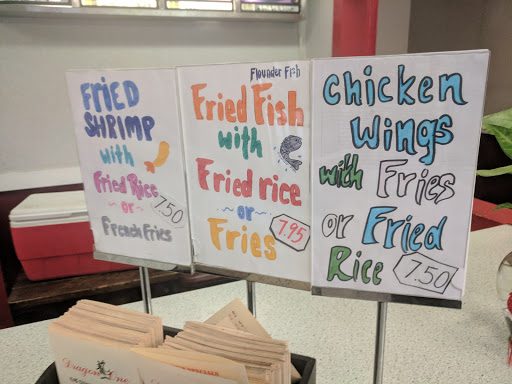 FRIED
SHRIMP
with
Fried Rice
or
French Fries
7.50
Flounder Fish
Fried Fish
with
Fried rice
or
Fries
7.95
chicken
Wings
with Fries
or Fried
Rice
7.50
Dragon One